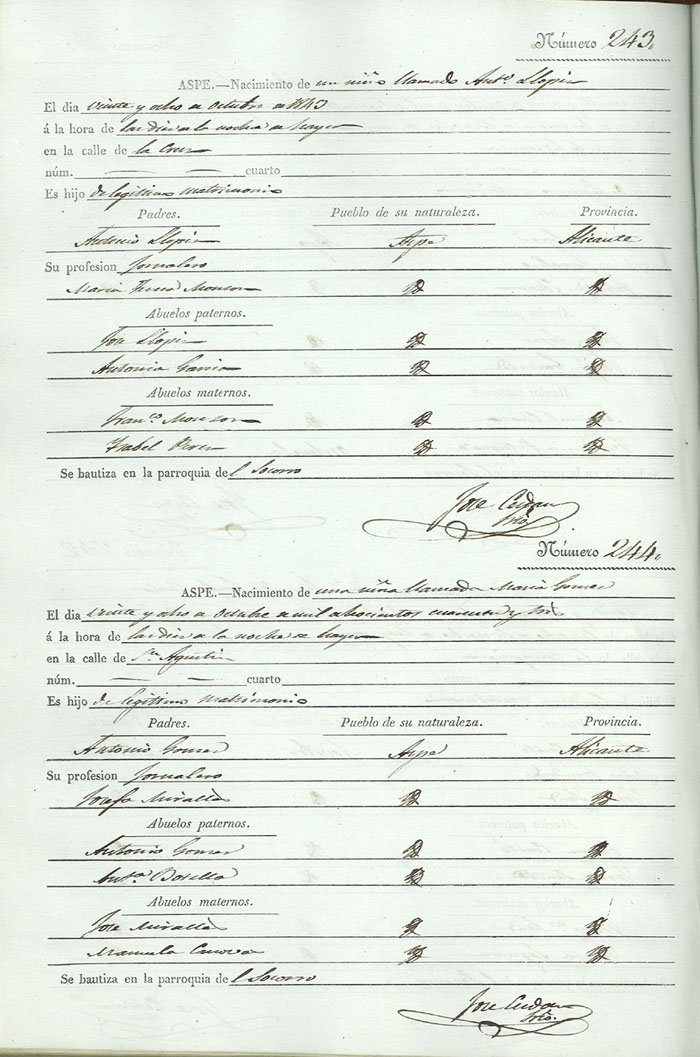 Número 243.
ASPE.—Nacimiento de un niño llamado Antº Llopis
El dia veinte y ocho de octubre de 1843
á la hora de las diez de la noche de hayer
en la calle de la Cruz
núm. — — cuarto
Es hijo de legítimo matrimonio
Padres. Pueblo de su naturaleza. Provincia.
Antonio Llopis Aspe Alicante
Su profesion Jornalero
Maria Monzon
Abuelos paternos.
Jose Llopis
Antonia Garcia
Abuelos maternos.
Franco Monzon
Ysabel Perez
Se bautiza en la parroquia del Socorro
Jose
Srio.
Número 244.
ASPE.—Nacimiento de una niña llamada Maria Gomez
El dia veinte y ocho de octubre de mil ochocientos cuarenta y tres
á la hora de las diez de la noche de hayer
en la calle de Sn Agustin
núm. — — cuarto
Es hijo de legítimo matrimonio
Padres. Pueblo de su naturaleza. Provincia.
Antonio Gomez Aspe Alicante
Su profesion Jornalero
Josefa Miralles
Abuelos paternos.
Antonio Gomez
Anta Botella
Abuelos maternos.
Jose Miralles
Manuela
Se bautiza en la parroquia del Socorro
Jose
Srio.